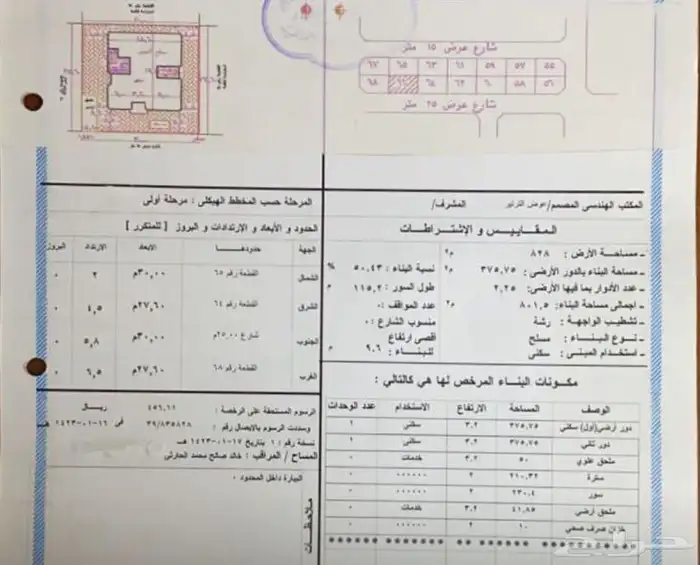 شارع عرض ١٥ متر
٦٧ ٦٥ ٦٣ ٦١ ٥٩ ٥٧ ٥٥
٦٨ ٦٤ ٦٢ ٦٠ ٥٨ ٥٦
شارع عرض ٢٥ متر
المكتب الهندسى المصمم/عوض الترتير المشرف/
المقاييس و الإشتراطات
- مساحة الأرض : ٨٢٨ م٢
- مساحة البناء بالدور الأرضى: ٣٧٥,٧٥ م٢ نسبة البناء : ٥٠,٤٣ %
- عدد الأدوار بما فيها الأرضى: ٢,٢٥ طول السور : ١١٥,٢ م
- اجمالى مساحة البناء: ٨٠١,٥ م٢ عدد المواقف: ٠
- تشطيب الواجهة : رشة منسوب الشارع : ٠
- نوع البناء : مسلح أقصى ارتفاع
- استخدام المبنى : سكنى للبناء : ٩,٦ م
مكونات البناء المرخص لها هي كالتالي :
الوصف المساحة الارتفاع الاستخدام عدد الوحدات
دور أرضي(أول) سكني ٣٧٥,٧٥ ٣,٢ سكنى ١
دور ثاني ٣٧٥,٧٥ ٣,٢ سكنى ١
ملحق علوي ٥٠ ٣,٢ خدمات ٠
سترة ٢١٠,٣٢ ٢ ...... ٠
سور ٢٣٠,٤ ٢ ...... ٠
ملحق أرضي ٤١,٨٥ ٣,٢ خدمات ٠
خزان صرف صحي ١٠ ٢ ...... ٠
المرحلة حسب المخطط الهيكلى : مرحلة أولى
الحدود و الأبعاد و الارتدادات و البروز [ للمتكرر ]
الجهة حدودها الأبعاد الارتداد البروز
الشمال القطعة رقم ٦٥ ٣٠,٠٠م ٢ ٠
الشرق القطعة رقم ٦٤ ٢٧,٦٠م ٤,٥ ٠
الجنوب شارع ٢٥,٠٠م ٣٠,٠٠م ٥,٨ ٠
الغرب القطعة رقم ٦٨ ٢٧,٦٠م ٦,٥ ٠
الرسوم المستحقة على الرخصة : ٤٥٦,٦١ ريال
وسددت الرسوم بالإيصال رقم : ٣٩/٨٣٥٨٢٨ فى ١٦-٠١-١٤٢٣ هـ
نسخة رقم : ١ بتاريخ ١٧-٠١-١٤٢٣ هـ
المساح / المراقب : خالد صالح محمد الحارثى
البيارة داخل الحدود ٠
ملاحظات
حراج